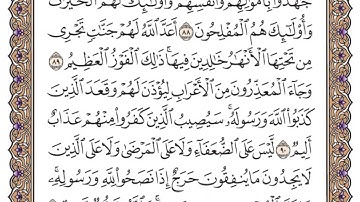 جَٰهَدُوا۟ بِأَمْوَٰلِهِمْ وَأَنفُسِهِمْ وَأُو۟لَٰٓئِكَ لَهُمُ ٱلْخَيْرَٰتُ
وَأُو۟لَٰٓئِكَ هُمُ ٱلْمُفْلِحُونَ ٨٨ أَعَدَّ ٱللَّهُ لَهُمْ جَنَّٰتٍ تَجْرِى
مِن تَحْتِهَا ٱلْأَنْهَٰرُ خَٰلِدِينَ فِيهَا ذَٰلِكَ ٱلْفَوْزُ ٱلْعَظِيمُ ٨٩
وَجَآءَ ٱلْمُعَذِّرُونَ مِنَ ٱلْأَعْرَابِ لِيُؤْذَنَ لَهُمْ وَقَعَدَ ٱلَّذِينَ
كَذَبُوا۟ ٱللَّهَ وَرَسُولَهُۥ سَيُصِيبُ ٱلَّذِينَ كَفَرُوا۟ مِنْهُمْ عَذَابٌ
أَلِيمٌ ٩٠ لَّيْسَ عَلَى ٱلضُّعَفَآءِ وَلَا عَلَى ٱلْمَرْضَىٰ وَلَا عَلَى ٱلَّذِينَ
لَا يَجِدُونَ مَا يُنفِقُونَ حَرَجٌ إِذَا نَصَحُوا۟ لِلَّهِ وَرَسُولِهِۦ